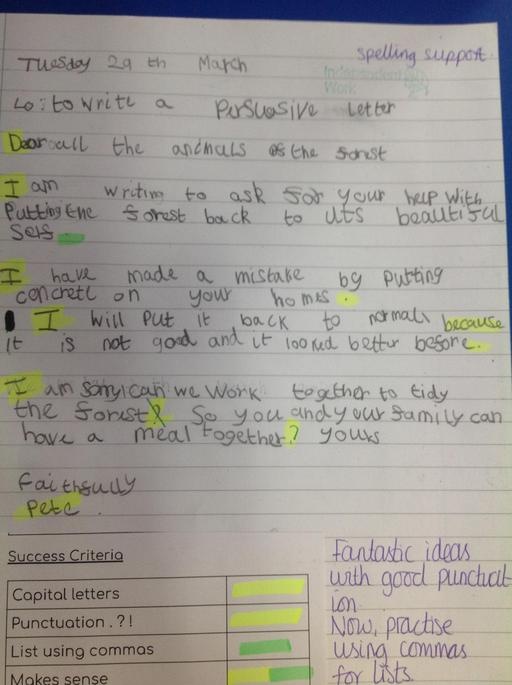 spelling support
Independent
Work
Tuesday 29th March
Lo: to write a Persuasive Letter
Dear all the animals of the forest
I am writing to ask for your help with
Putting the forest back to uts beautiful
self.
I have made a mistake by putting
concrete on your homes.
I will put it back to normall because
it is not good and it looked better before.
I am sorry i can we work together to tidy
the forest? So you and your family can
have a meal together? yours
Faithfully
Pete.
Success Criteria
Capital letters
Punctuation .?!
List using commas
Makes sense
Fantastic ideas
with good punctuat
ion.
Now, practise
using commas
for lists.